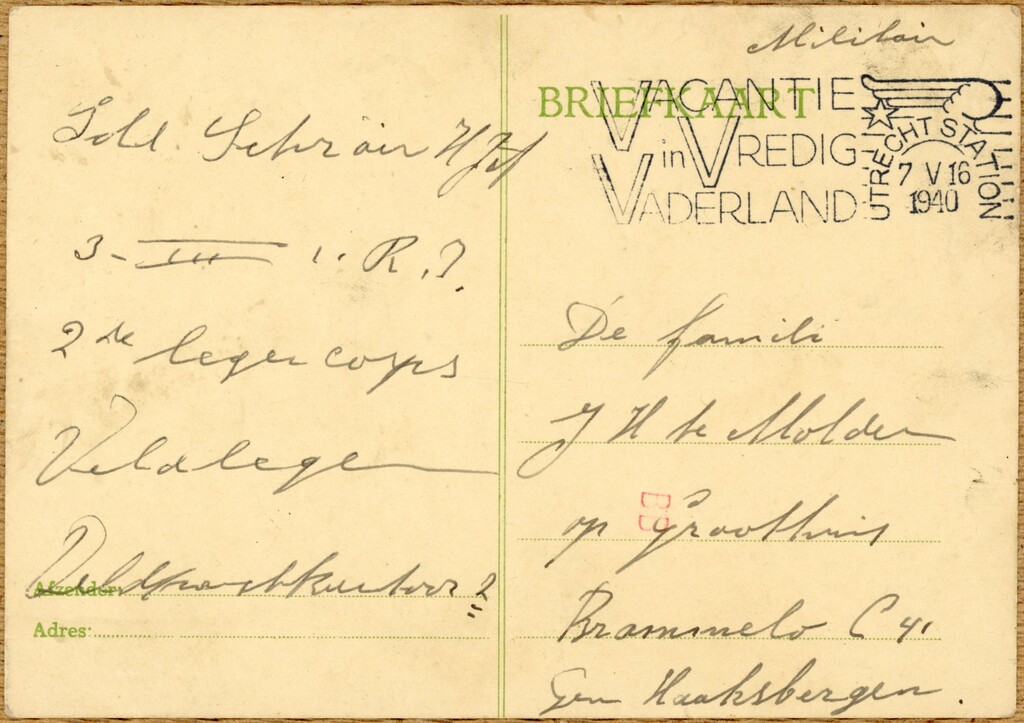 Militair
BRIEFKAART
VACANTIE
in VREDIG
VADERLAND
UTRECHT STATION
7 V 16
1940
Sold. Schrair H J
3-III 1. R.I.
2de legercorps
Veldleger
Veldpostkantoor 2
Afzender:
Adres:
De famili
J H te Molder
op Groothuis
BB
Brammelo C 41
Gem Haaksbergen.